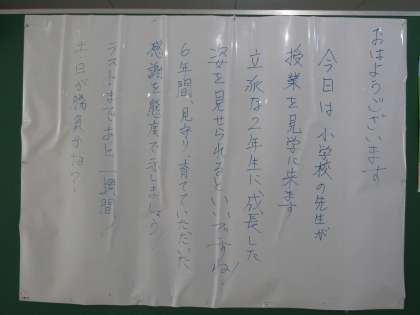 おはようございます
今日は小学校の先生が
授業を見学に来ます
立派な2年生に成長した
姿を見せられるといいですね!
6年間、見守り、育てていただいた
感謝を態度で示しましょう
ラストまであと一週間!
土日が勝負かな?